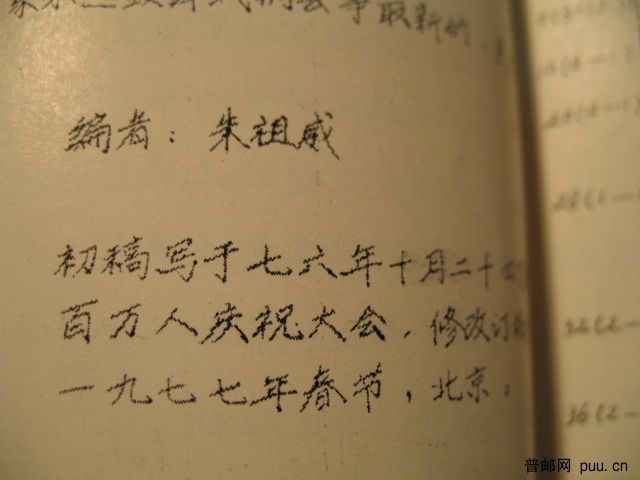 最新的，
编者：朱祖威
初稿写于七六年十月二十
百万人庆祝大会，修改订
一九七七年春节，北京。
28(1-
32(2-
36(2-
普邮网 puu.cn